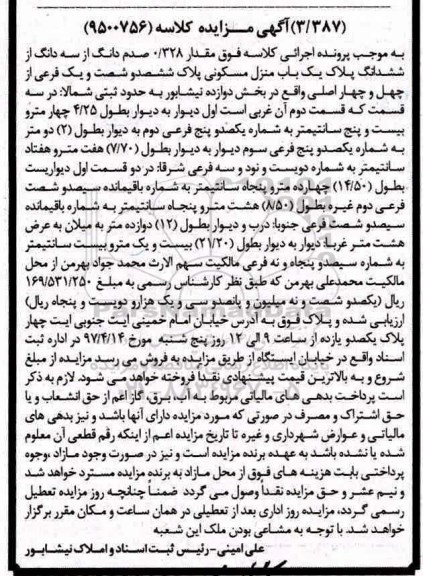 (۳/۳۸۷) آگهی مـزایده کلاسه (۹۵۰۰۷۵۶)
به موجب پرونده اجرائی کلاسه فوق مقدار ۰/۳۲۸ صدم دانگ از سه دانگ از
ششدانگ پلاک یک باب منزل مسکونی پلاک ششصدو شصت و یک فرعی از
چهل و چهار اصلی واقع در بخش دوازده نیشابور به حدود ثبتی شمالا: در سه
قسمت که قسمت دوم آن غربی است اول دیوار به دیوار بطول ۴/۲۵ چهار مترو
بیست و پنج سانتیمتر به شماره یکصدو پنج فرعی دوم به دیوار بطول (۲) دو متر
به شماره یکصدی پنج فرعی سوم دیوار به دیوار بطول (۷/۷۰) هفت مترو هفتاد
سانتیمتر به شماره دویست و نود و سه فرعی شرقا: در دو قسمت اول دیواریست
بطول (۱۴/۵۰) چهارده مترو پنجاه سانتیمتر به شماره باقیمانده سیصدو شصت
فرعی دوم غیره بطول (۸/۵۰) هشت مترو پنجاه سانتیمتر به شماره باقیمانده
سیصدو شصت فرعی جنوبا: درب و دیوار بطول (۱۲) دوازده متر به میلان به عرض
هشت متر غربا: دیوار به دیوار بطول (۲۱/۲۰) بیست و یک مترو بیست سانتیمتر
به شماره سیصدو پنجاه و نه فرعی مالکیت سهم الارث محمد جواد بهرمن از محل
مالکیت محمدعلی بهرمن که طبق نظر کارشناس رسمی به مبلغ ۱۶۹/۵۳۱/۲۵۰
ریال (یکصدو شصت و نه میلیون و پانصدو سی و یک هزارو دویست و پنجاه ریال)
ارزیابی شده و پلاک فوق به آدرس خیابان امام خمینی آیت جنوبی آیت چهار
پلاک یکصدو یازده از ساعت ۹ الی ۱۲ روز پنج شنبه مورخ ۹۷/۴/۱۴ در اداره ثبت
اسناد واقع در خیابان ایستگاه از طریق مزایده به فروش می رسد مزایده از مبلغ
شروع و به بالاترین قیمت پیشنهادی نقدا فروخته خواهد می شود. لازم به ذکر
است پرداخت بدهی های مالیاتی مربوط به آب، برق، گاز اعم از حق انشعاب و یا
حق اشتراک و مصرف در صورتی که مورد مزایده دارای آنها باشد و نیز بدهی های
مالیاتی و عوارض شهرداری و غیره تا تاریخ مزایده اعم از اینکه رقم قطعی آن معلوم
شده یا نشده باشد به عهده برنده مزایده است و نیز در صورت وجود مازاد ،وجوه
پرداختی بابت هزینه های فوق از محل مازاد به برنده مزایده مسترد خواهد شد
و نیم عشر و حق مزایده نقداً وصول می گردد ضمناً چنانچه روز مزایده تعطیل
رسمی گردد، مزایده روز اداری بعد از تعطیلی در همان ساعت و مکان مقرر برگزار
خواهد شد. با توجه به مشاعی بودن ملک این شعبه
علی امینی - رئیس ثبت اسناد و املاک نیشابور